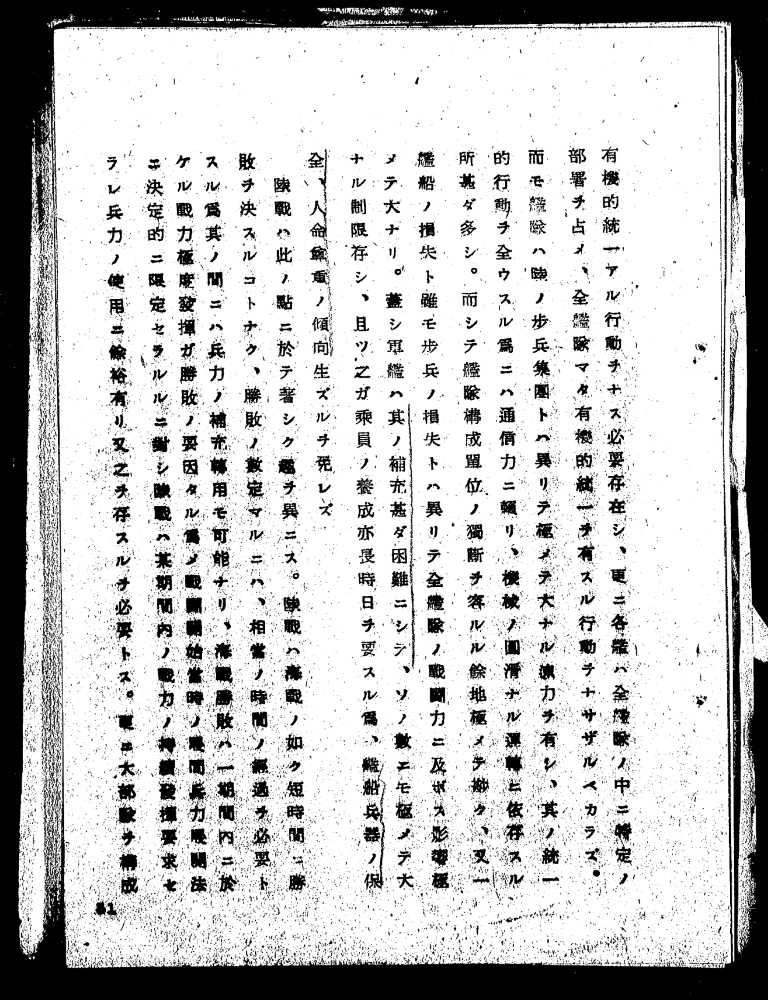 有機的統一アル行動ヲナス必要存在シ、更ニ各艦ハ全艦隊ノ中ニ特定ノ
部署ヲ占メ、全艦隊マタ有機的統一ヲ有スル行動ヲナサザルベカラズ。
而モ艦隊ハ陸ノ歩兵集團トハ異リテ極メテ大ナル速力ヲ有シ、其ノ統一
的行動ヲ全ウスル爲ニハ通信力ニ頼リ、機械ノ圓滑ナル運轉ニ依存スル
所甚ダ多シ。而シテ艦隊構成單位ノ獨斷ヲ容ルル餘地極メテ尠ク、又一
艦船ノ損失ト雖モ歩兵ノ損失トハ異リテ全艦隊ノ戰鬪力ニ及ボス影響極
メテ大ナリ。蓋シ軍艦ハ其ノ補充甚ダ困難ニシテ、ソノ數エモ極メテ大
ナル制限存シ、且ツ之ガ乘員ノ養成亦長時日ヲ要スル爲、艦船兵器ノ保
全、人命尊重ノ傾向生ズルヲ免レズ
陸戰ハ此ノ點ニ於テ著シク趣ヲ異ニス。陸戰ハ海戰ノ如ク短時間ニ勝
敗ヲ決スルコトナク、勝敗ノ數定マルニハ、相當ノ時間ノ經過ヲ必要ト
スル爲其ノ間ニハ兵力ノ補充轉用モ可能ナリ、海戰勝敗ハ一期間内ニ於
ケル戰力極度發揮ガ勝敗ノ要因タル爲メ戰鬪開始當時ノ展開兵力展開法
ニ決定的ニ限定セラルルニ對シ陸戰ハ某期間内ノ戰力ノ持續發揮要求セ
ラレ兵力ノ使用ニ餘裕有リ又之ヲ存スルヲ必要トス。更ニ大部隊ヲ構成
51